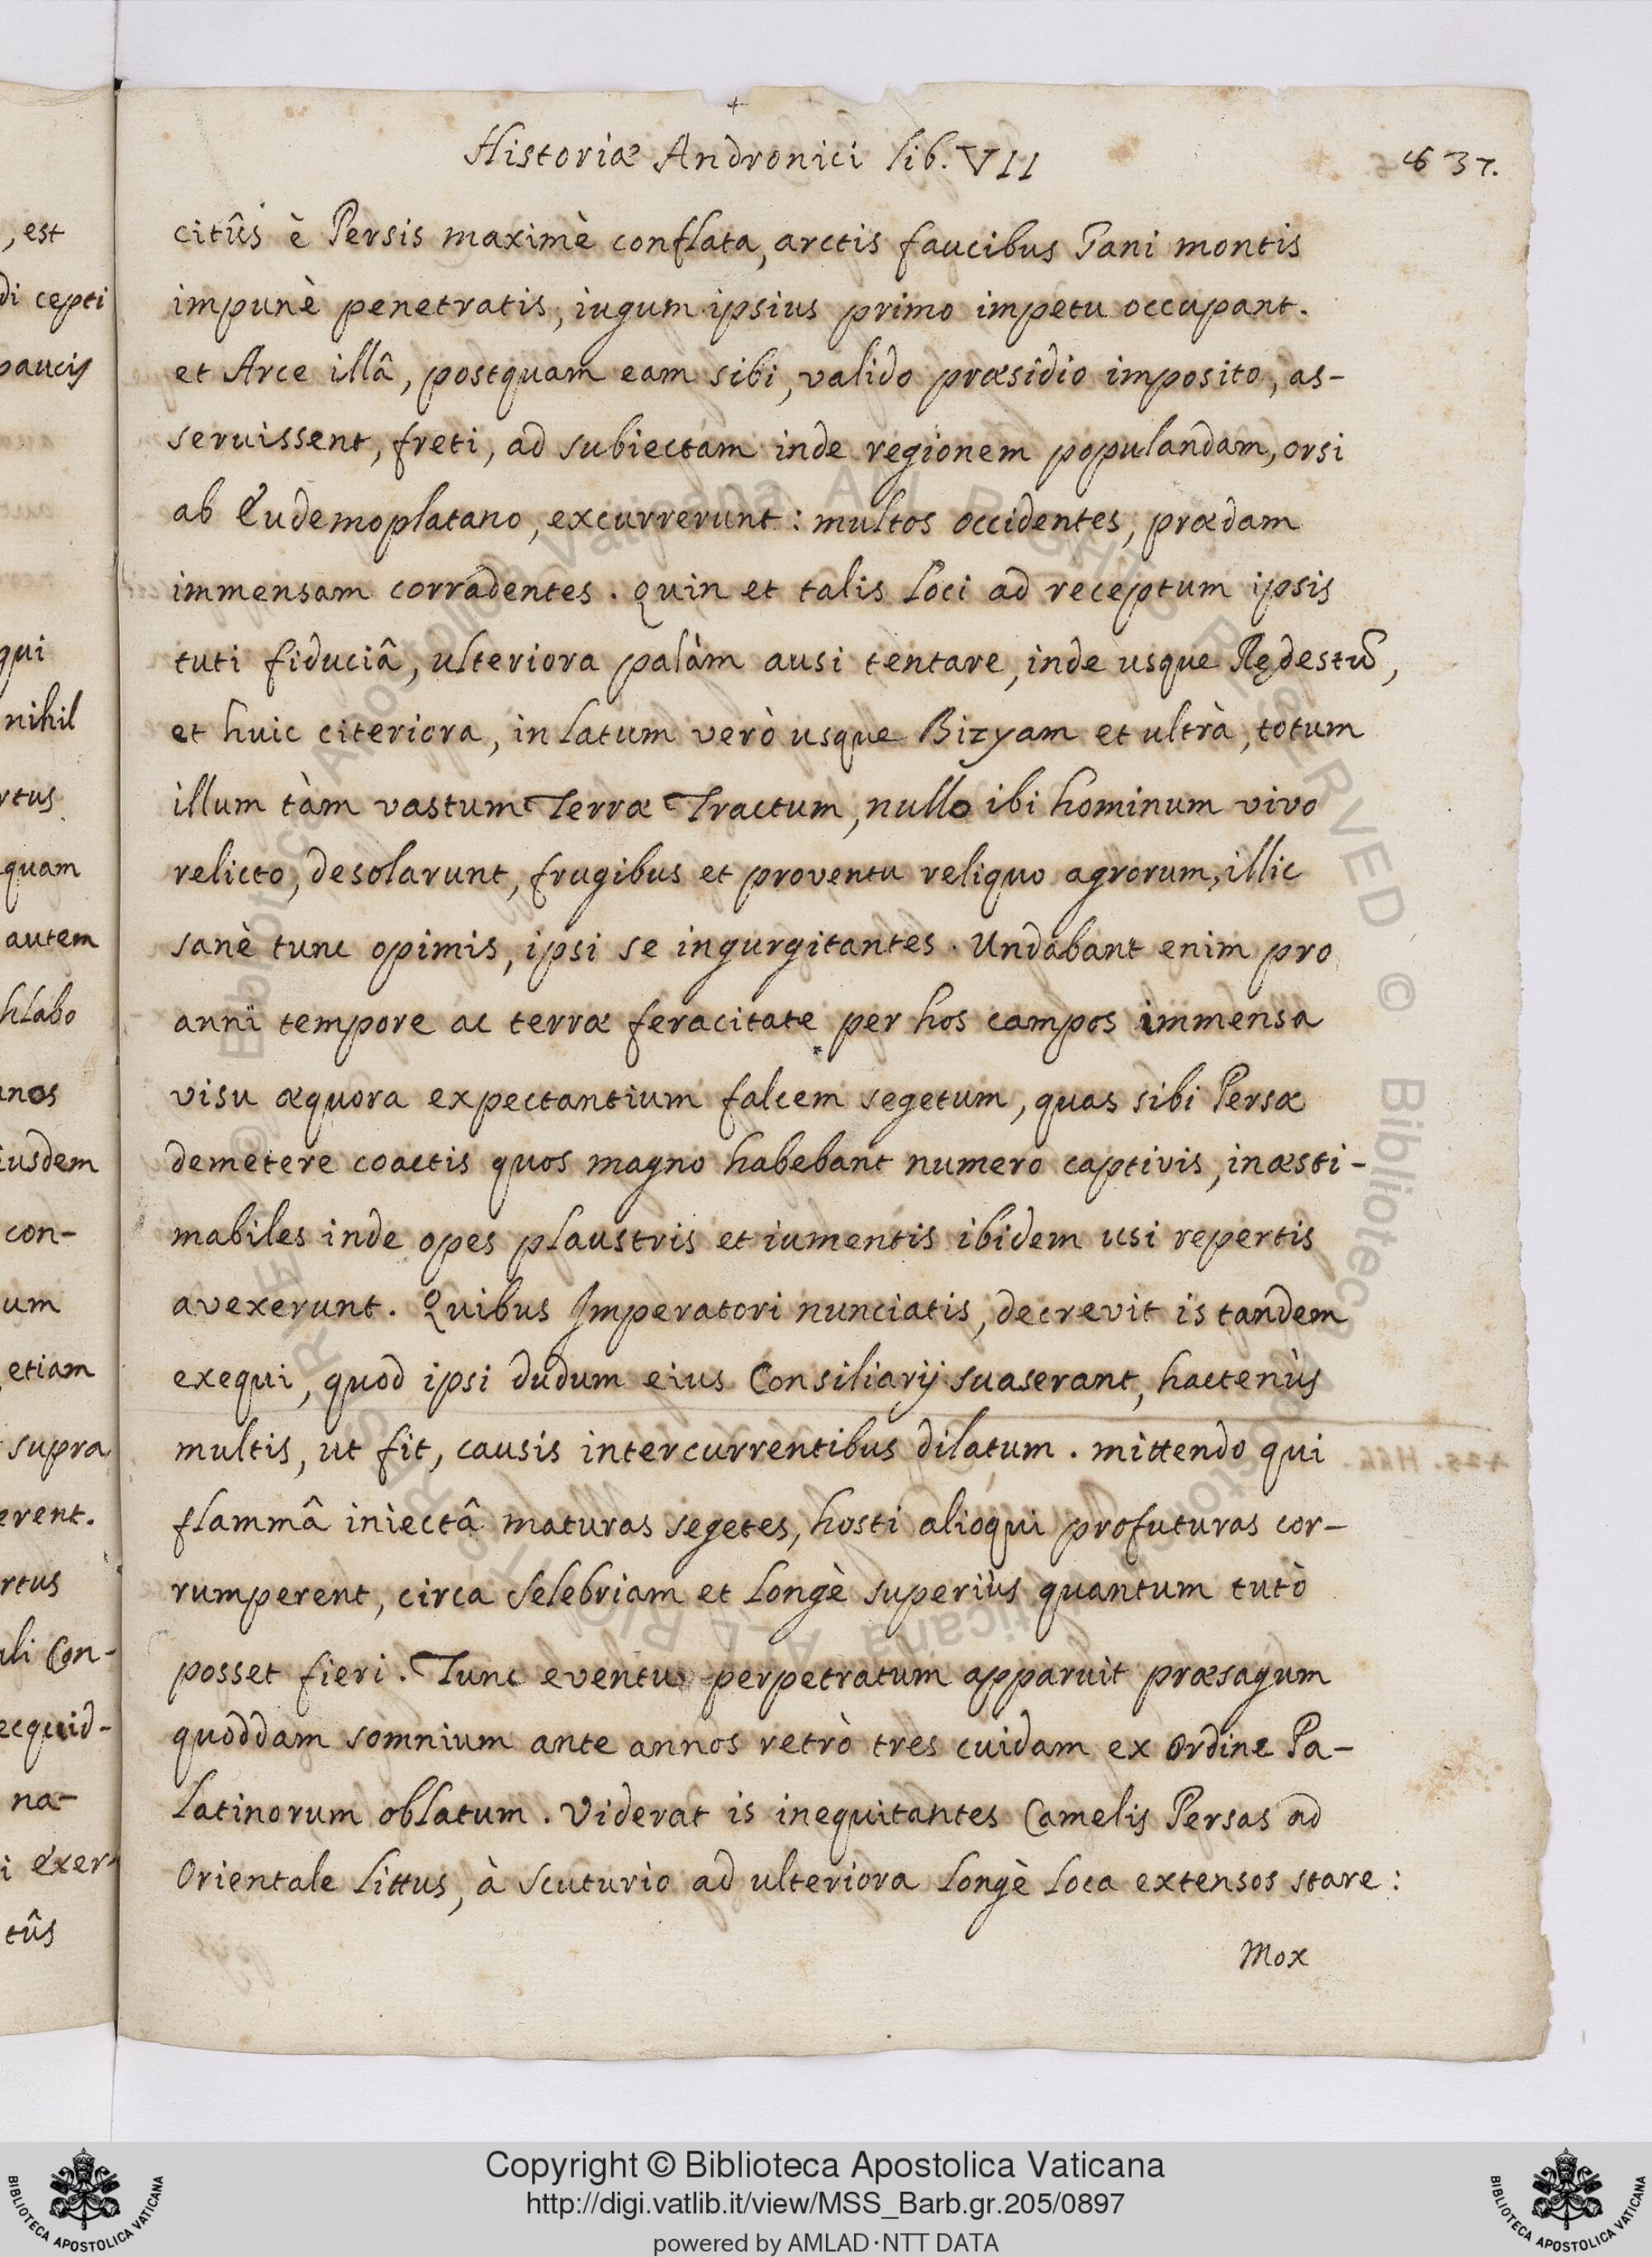 Historiæ Andronici lib. VII
637.
citûs è Persis maximè conflata, arctis faucibus Gani montis
impunè penetratis, iugum ipsius primo impetu occupant.
et Arce illâ, postquam eam sibi, valido præsidio imposito, as-
seruissent, freti, ad subiectam inde regionem populandam, orsi
ab Eudemoplatano, excurrerunt: multos occidentes, prædam
immensam corradentes. Quin et talis loci ad receptum ipsis
tuti fiduciâ, ulteriora palàm ausi tentare, inde usque Rędestũ,
et huic citeriora, in latum verò usque Bizyam et ultrà, totum
illum tàm vastum Terræ Tractum, nullo ibi hominum vivo
relicto, desolarunt, frugibus et proventu reliquo agrorum, illic
sanè tunc opimis, ipsi se ingurgitantes. Undabant enim pro
anni tempore ac terræ feracitate per hos campos immensa
visu æquora expectantium falcem segetum, quas sibi Persæ
demetere coactis quos magno habebant numero captivis, inæsti-
mabiles inde opes plaustris et iumentis ibidem usi repertis
avexerunt. Quibus Imperatori nunciatis, decrevit is tandem
exequi, quod ipsi dudum eius Consiliarij suaserant, hactenùs
multis, ut fit, causis intercurrentibus dilatum. mittendo qui
flammâ iniectâ maturas segetes, hosti alioqui profuturas cor-
rumperent, circa Selebriam et longè superiùs quantum tutò
posset fieri. Tunc eventu perpetratum apparuit præsagum
quoddam somnium ante annos retrò tres cuidam ex ordine Pa-
latinorum oblatum. Viderat is inequitantes Camelis Persas ad
Orientale littus, à Scuturio ad ulteriora longè loca extensos stare:
Mox
, est
di cepti
paucis
qui
nihil
rtus
quam
autem
hlabo
nos
iusdem
con-
um
etiam
supra
erent.
rtus
uli Con-
ecquid-
na-
i exer-
tûs
Copyright © Biblioteca Apostolica Vaticana
http://digi.vatlib.it/view/MSS_Barb.gr.205/0897
powered by AMLAD·NTT DATA
BIBLIOTECA APOSTOLICA VATICANA
BIBLIOTECA APOSTOLICA VATICANA